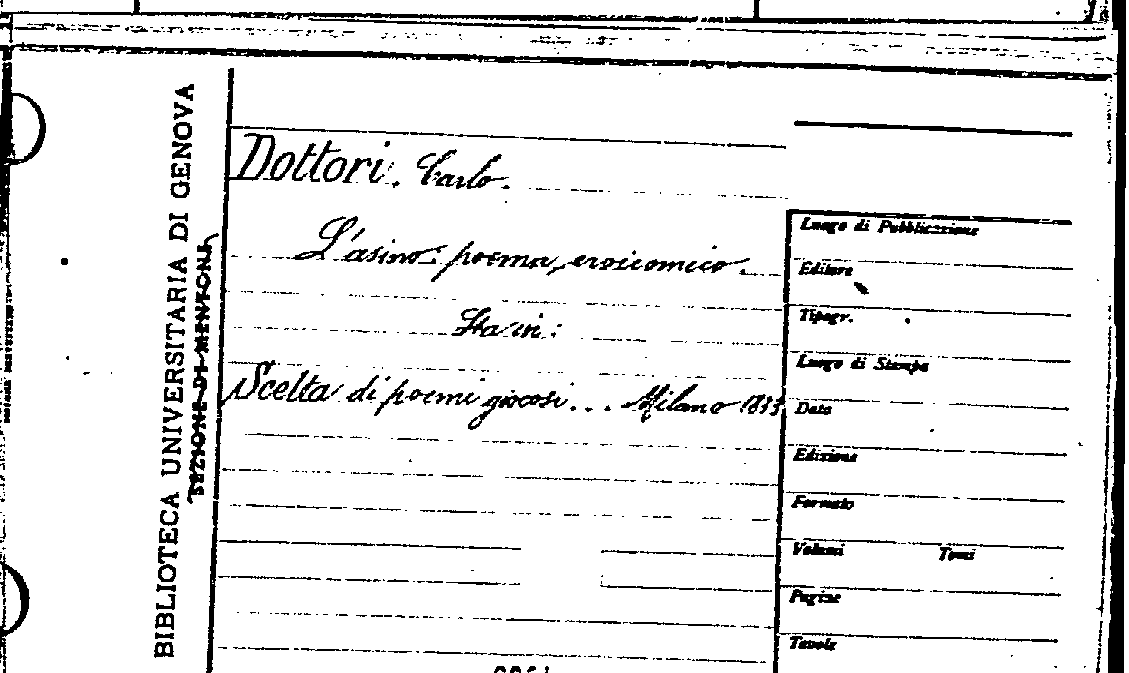 BIBLIOTECA UNIVERSITARIA DI GENOVA
SEZIONE DI
Dottori. Carlo.
L'asino: poema eroicomico.
Sta in:
Scelta di poemi giocosi... Milano
Luogo di Pubblicazione
Editore
Tipogr.
Luogo di Stampa
Data
Edizione
Formato
Volumi Tomi
Pagine
Tavole